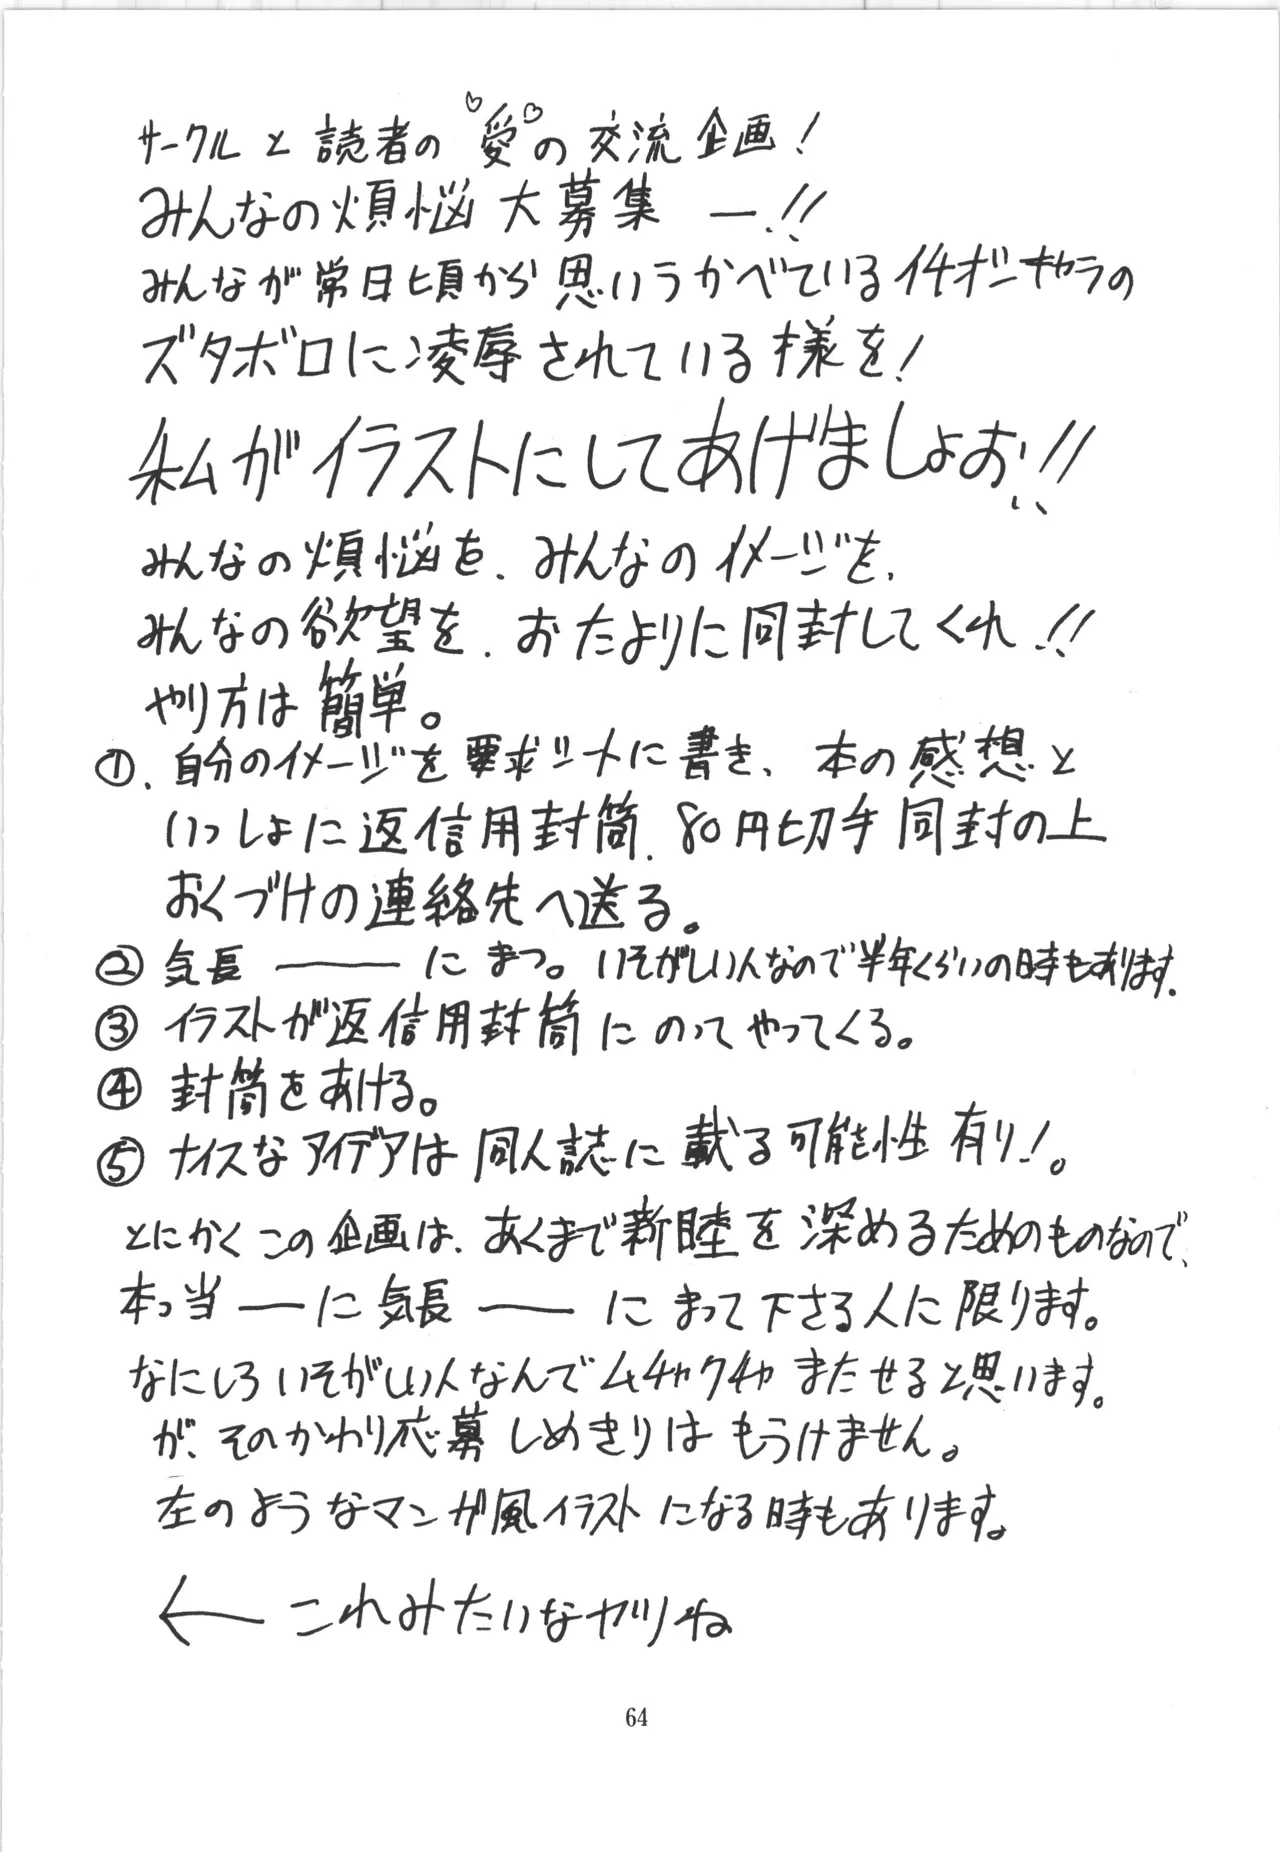 サークルと読者の愛の交流企画!
みんなの煩悩大募集―!!
みんなが常日頃から思いうかべているイチオシキャラの
ズタボロに凌辱されている様を!
私がイラストにしてあげましょお!!
みんなの煩悩を、みんなのイメージを、
みんなの欲望を、おたよりに同封してくれ!!
やり方は簡単。
①、自分のイメージを要求シートに書き、本の感想と
いっしょに返信用封筒、80円切手同封の上
おくづけの連絡先へ送る。
② 気長――にまつ。いそがしい人なので半年くらいの時もあります。
③ イラストが返信用封筒にのってやってくる。
④ 封筒をあける。
⑤ ナイスなアイデアは同人誌に載る可能性有り!。
とにかくこの企画は、あくまで新睦を深めるためのものなので、
本っ当――に気長――にまって下さる人に限ります。
なにしろいそがしい人なんでムチャクチャまたせると思います。
が、そのかわり応募しめきりはもうけません。
左のようなマンガ風イラストになる時もあります。
← これみたいなヤツね
64